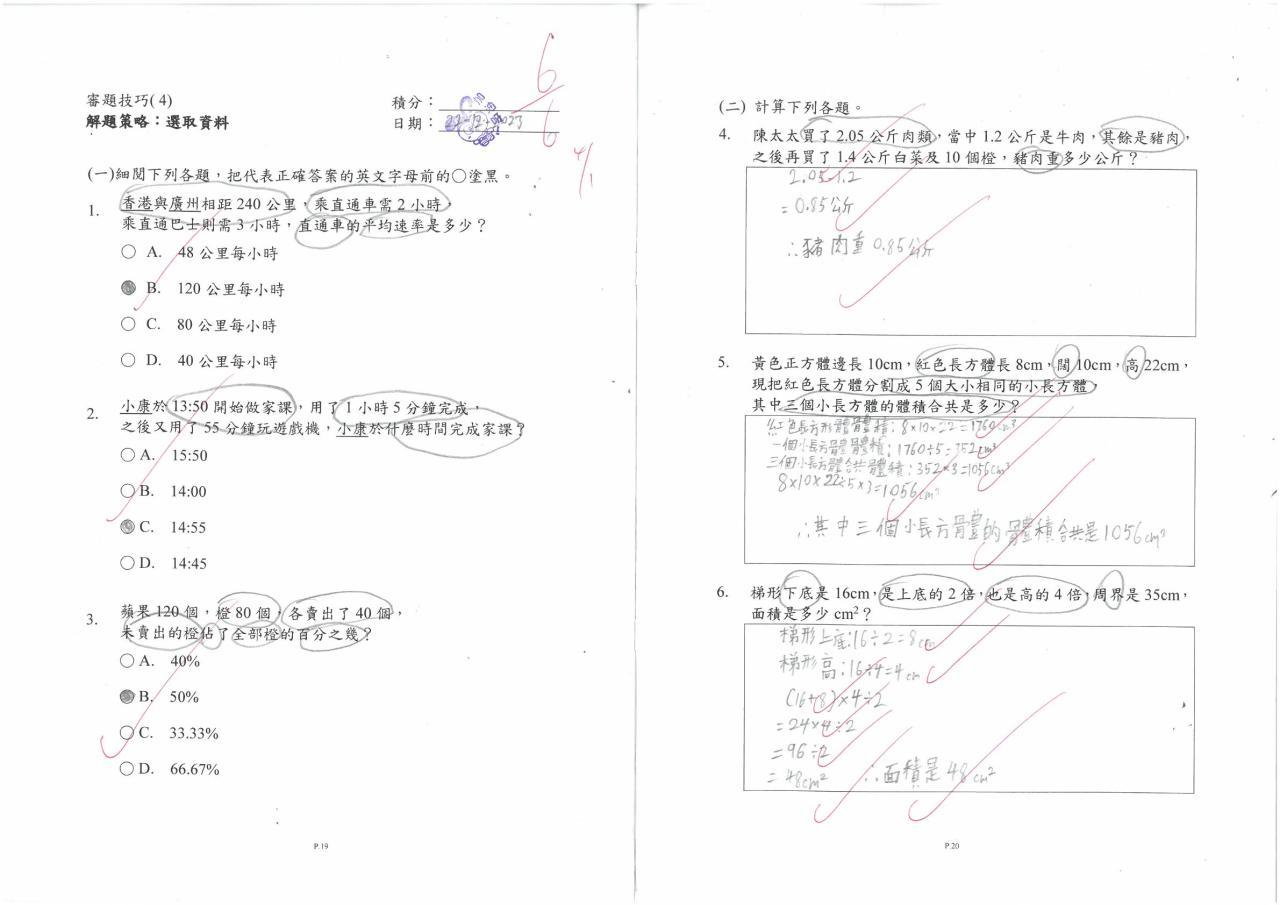 6
6
審題技巧( 4)
積分：
解題策略：選取資料
日期：
4/1
(一)細閱下列各題，把代表正確答案的英文字母前的〇塗黑。
1. 香港與廣州相距 240 公里，乘直通車需 2 小時，
乘直通巴士則需 3 小時，直通車的平均速率是多少？
A. 48 公里每小時
B. 120 公里每小時
C. 80 公里每小時
D. 40 公里每小時
2. 小康於 13:50 開始做家課，用了 1 小時 5 分鐘完成，
之後又用了 55 分鐘玩遊戲機，小康於什麼時間完成家課？
A. 15:50
B. 14:00
C. 14:55
D. 14:45
3. 蘋果 120 個，橙 80 個，各賣出了 40 個，
未賣出的橙佔了全部橙的百分之幾？
A. 40%
B. 50%
C. 33.33%
D. 66.67%
P.19
(二) 計算下列各題。
4. 陳太太買了 2.05 公斤肉類，當中 1.2 公斤是牛肉，其餘是豬肉，
之後再買了 1.4 公斤白菜及 10 個橙，豬肉重多少公斤？
2.05-1.2
=0.85公斤
∴豬肉重 0.85公斤
5. 黃色正方體邊長 10cm，紅色長方體長 8cm，闊 10cm，高 22cm，
現把紅色長方體分割成 5 個大小相同的小長方體，
其中三個小長方體的體積合共是多少？
紅色長方形體體積：8×10×22=1760cm³
一個小長方體體積：1760÷5=352cm³
三個小長方體合共體積：352×3=1056cm³
8×10×22÷5×3=1056cm³
∴其中三個小長方體的體積合共是1056cm³
6. 梯形下底是 16cm，是上底的 2 倍，也是高的 4 倍，周界是 35cm，
面積是多少 cm²？
梯形上底：16÷2=8cm
梯形高：16÷4=4cm
(16+8)×4÷2
=24×4÷2
=96÷2
=48cm² ∴面積是48cm²
P.20